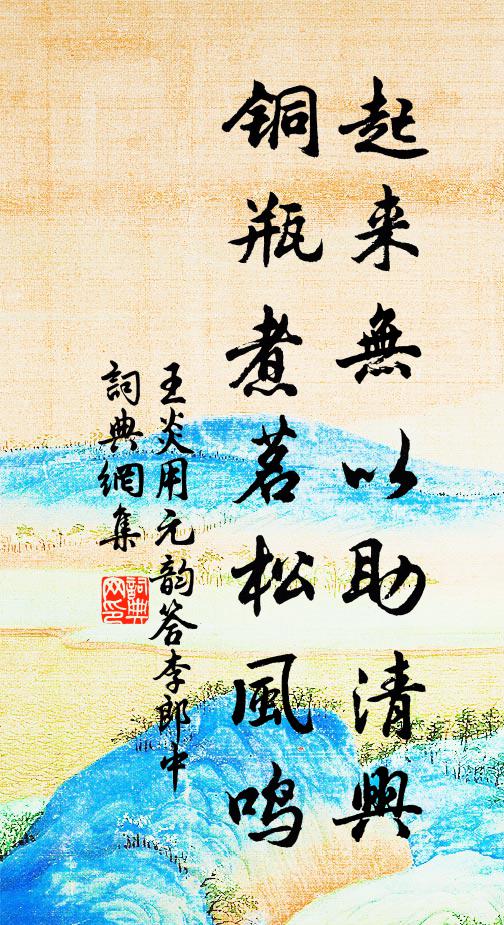 起来無以助清興
銅瓶煮茗松風鳴
王炎用元韵答李郎中
詞典網集